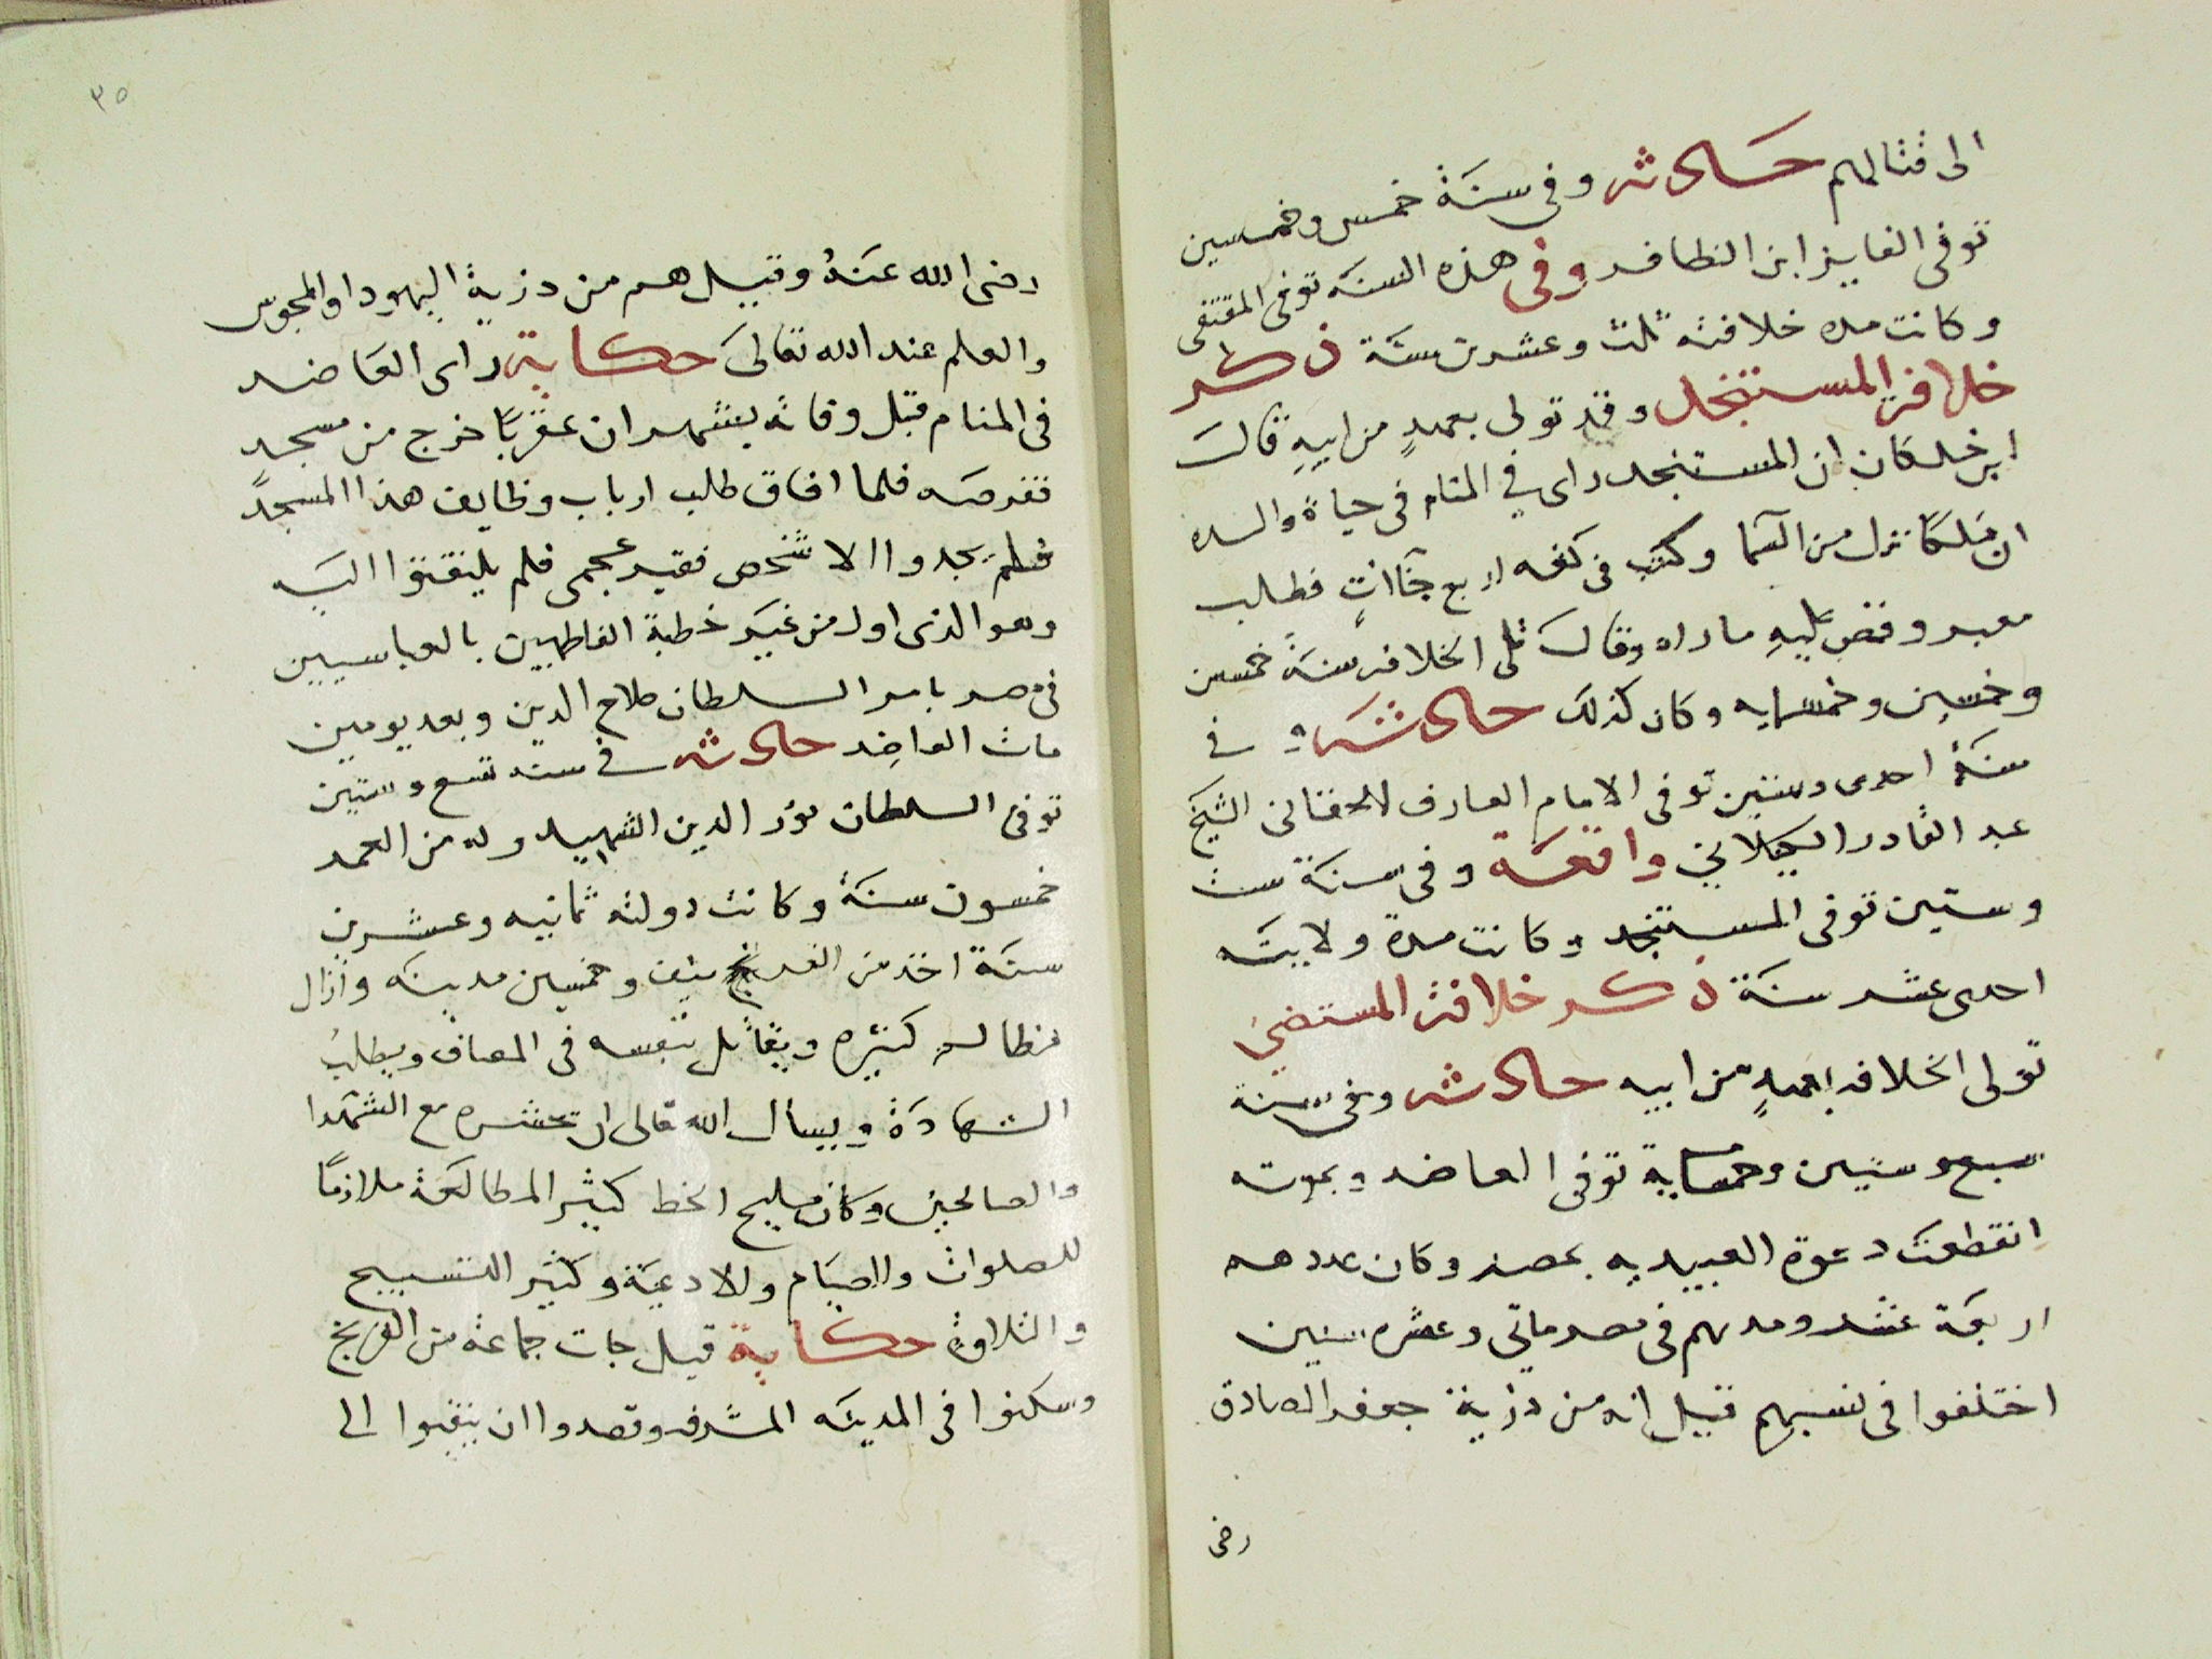 الى قتالهم حادثه وفى سنة خمس وخمسين
توفى الفايز ابن الظافر وفى هذه السنه توفى المقتفى
وكانت مده خلافته ثلث وعشرين سنة ذكر
خلافة المستنجد وقد تولى بعهدٍ من ابيهِ قالَ
ابن خلكان ان المستنجد راى في المنام فى حياة والده
ان ملكًا نزل من السما وكتب فى كفه اربع خاآتٍ فطلب
معبر وقص عليهِ ماراه وقالَ تلى الخلافه سنةً خمس
وخمسين وخمسمايه وكان كذلك حادثة وفى
سنةً احدى وستين توفى الامام العارف الشيخ
عبد القادر الكيلانى واقعة وفى سنة ست
وستين توفى المستنجد وكانت مدة ولايته
احدى عشر سنة ذكر خلافة المستضئ
تولى الخلافه بعهدٍ من ابيه حادثه وفى سنة
سبع وستين وخمسماية توفى العاضد وبموته
انقطعت دعوة العبيديه بمصر وكان عددهم
اربعة عشر ومدتهم فى مصر ماتى وعشره سنين
اختلفوا فى نسبهم قيل انه من دزية جعفر الصادق
رضى
٣٥
رضى الله عنهُ وقيل هم من دزية اليهود او المجوس
والعلم عند الله تعالىَ حكاية راى العاضد
فى المنام قبل وفاته بشهر ان عقربًا خرج من مسجد
فقرصه فلما افاق طلب ارباب وظايف هذا المسجد
فلم يجدوا الا شخص فقير عجمى فلم يلتفتوا اليه
وهو الذى اول من غير خطبة الفاطميين بالعباسيين
فى مصر بامر السلطان صلاح الدين وبعد يومين
مات العاضِد حادثه في سنه تسع وستين
توفى السلطان نور الدين الشهيد وله من العمر
خمسون سنة وكانت دولته ثمانيه وعشرين
سنة اخذ من الفرنج نيف وخمسين مدينه وازال
مظالم كثيره ويقاتل بنفسه فى المصاف ويطلبُ
الشهادَة ويسأل الله تعالى ان يحشره مع الشهدا
والصالحين وكان مليح الخط كثير المطالعة ملازمًا
للصلوات والصيام والادعية وكثير التسبيح
والتلاوة حكاية قيل جات جماعة من الفرنج
وسكنوا فى المدينه المشرفه وقصدوا ان ينقبوا الى